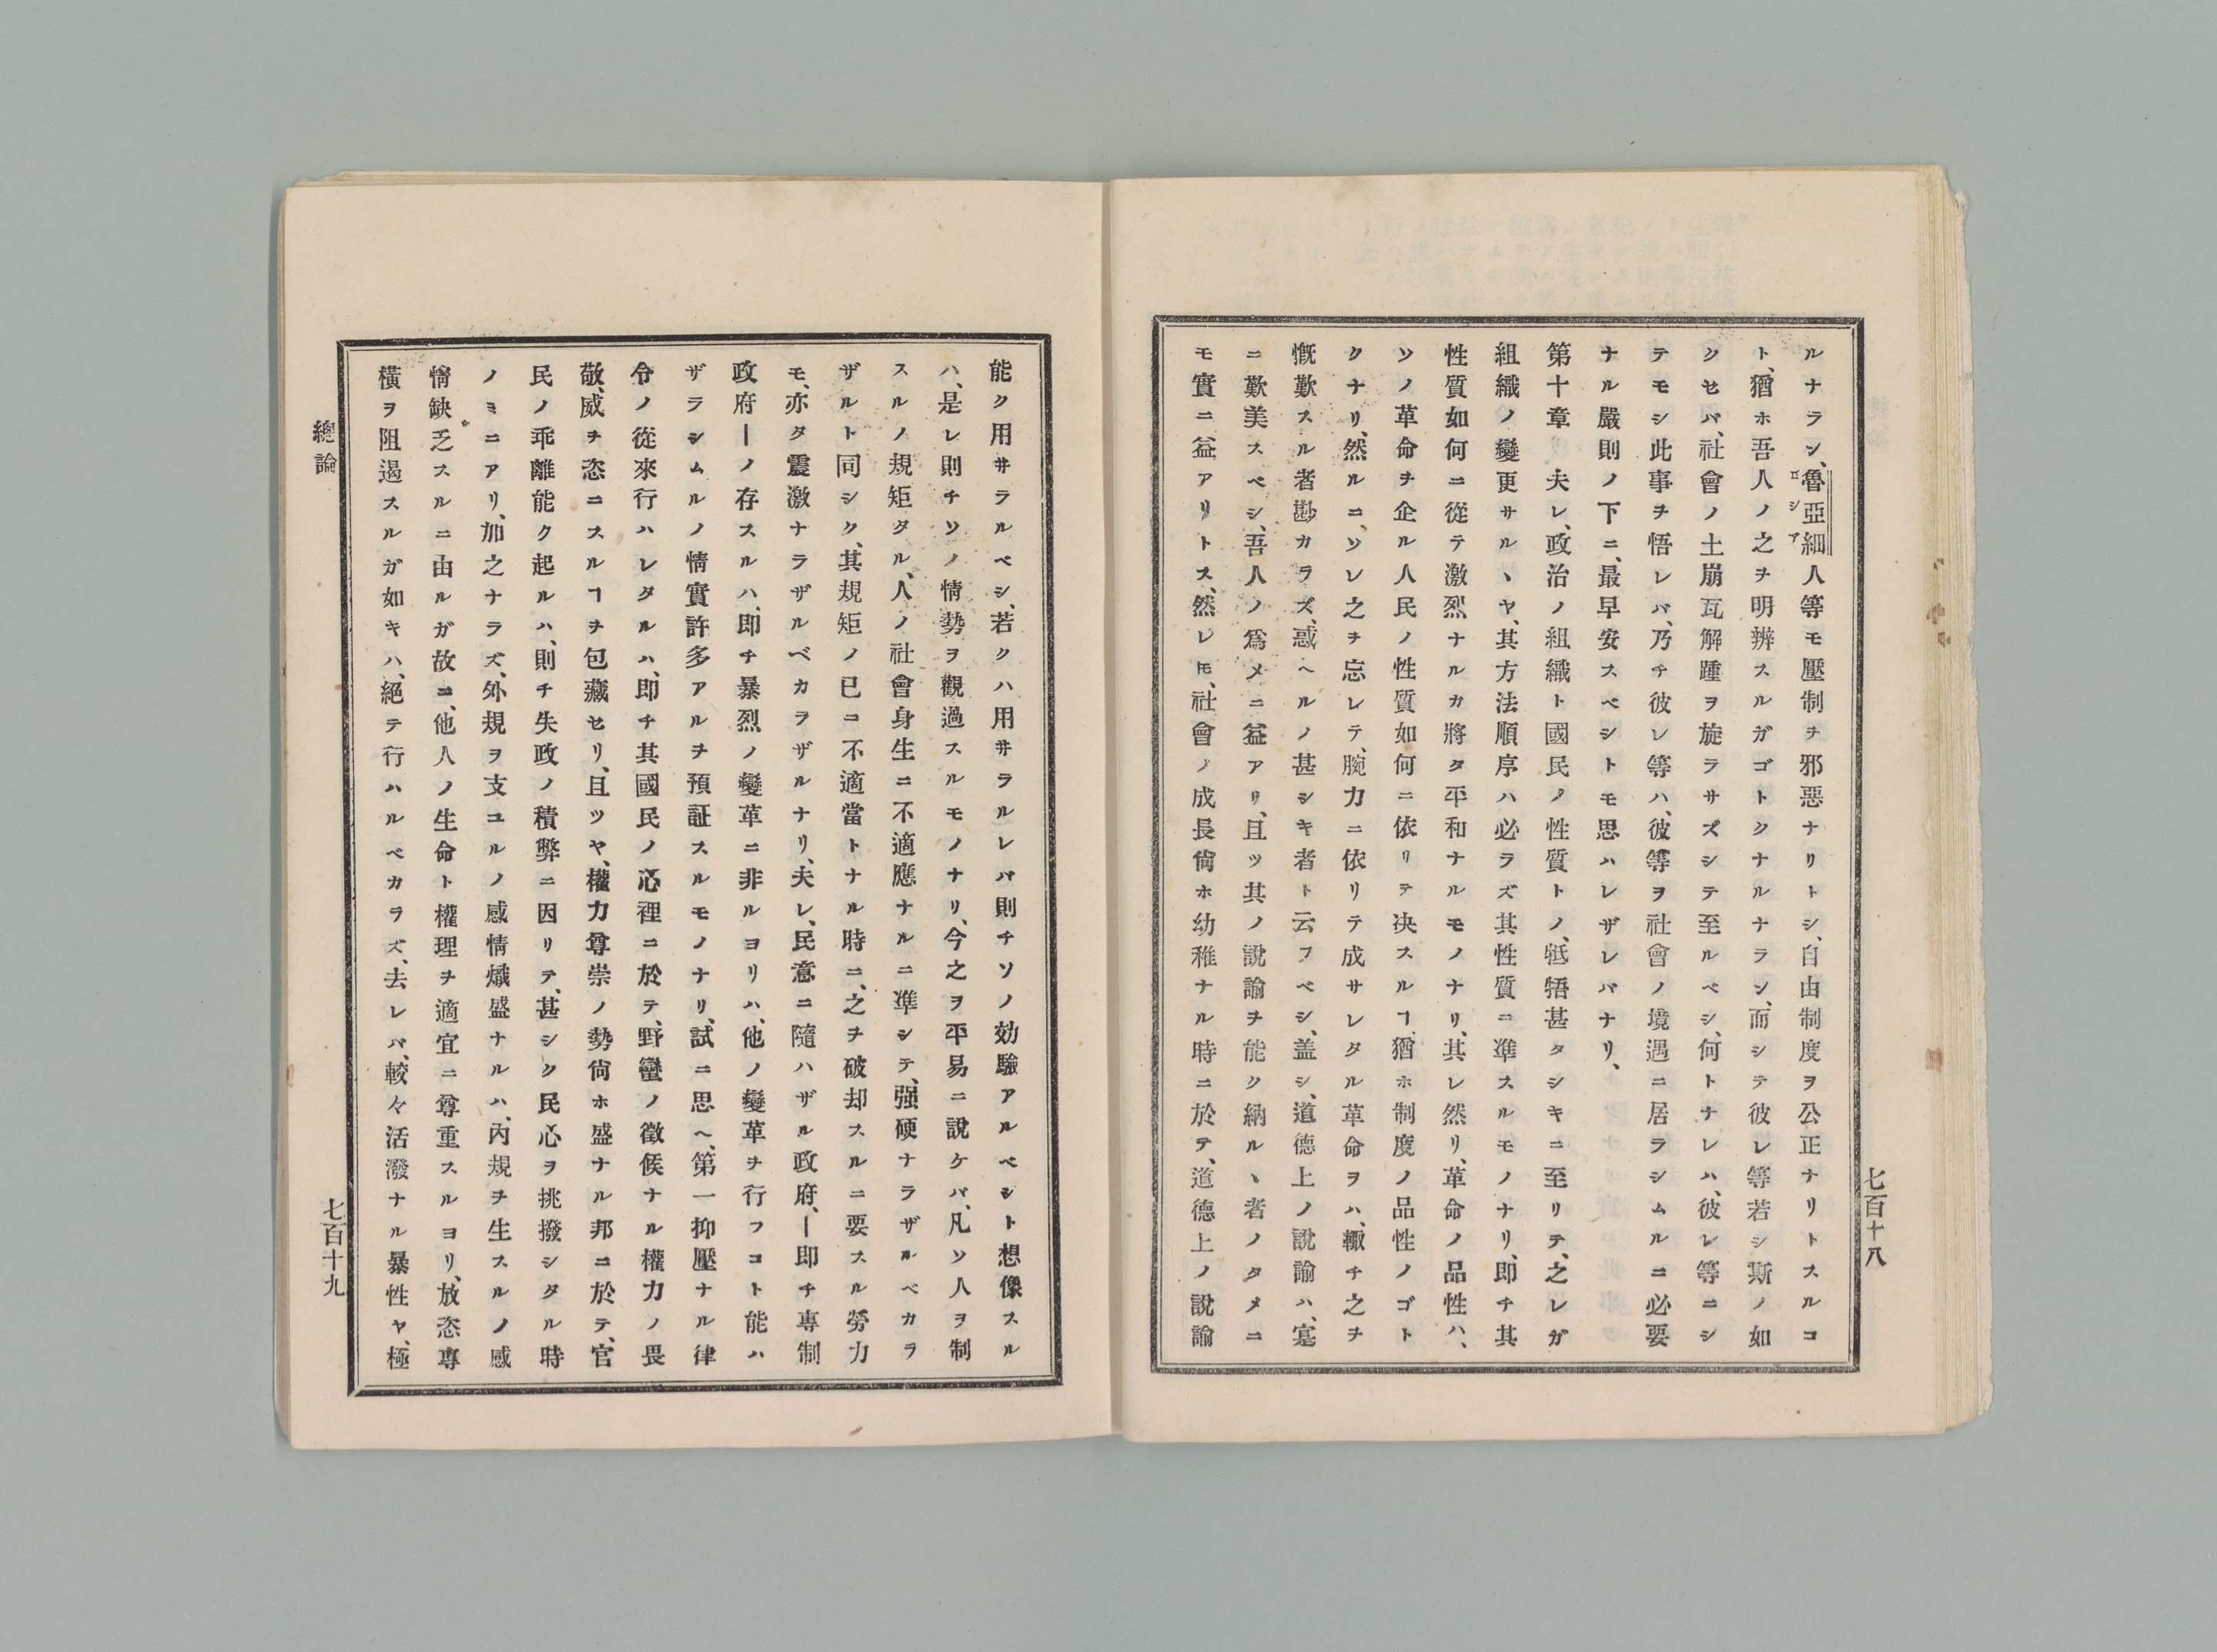 ルナラン、魯亞細人等モ壓制ヲ邪惡ナリトシ、自由制度ヲ公正ナリトスルコ
ロシア
ト、猶ホ吾人ノ之ヲ明辨スルガゴトクナルナラン、而シテ彼レ等若シ斯ノ如
クセバ、社會ノ土崩瓦解踵ヲ旋ラサズシテ至ルベシ、何トナレハ、彼レ等ニシ
テモシ此事ヲ悟レバ、乃チ彼レ等ハ、彼等ヲ社會ノ境遇ニ居ラシムルニ必要
ナル嚴則ノ下ニ、最早安スベシトモ思ハレザレバナリ、
第十章　夫レ、政治ノ組織ト國民ノ性質トノ、牴牾甚タシキニ至リテ、之レガ
組織ノ變更サルヽヤ、其方法順序ハ必ラズ其性質ニ凖スルモノナリ、即チ其
性質如何ニ從テ激烈ナルカ將タ平和ナルモノナリ、其レ然リ、革命ノ品性ハ、
ソノ革命ヲ企ル人民ノ性質如何ニ依リテ决スルヿ、猶ホ制度ノ品性ノゴト
クナリ、然ルニ、ソレ之ヲ忘レテ、腕力ニ依リテ成サレタル革命ヲハ、輙チ之ヲ
慨歎スル者尠カラズ、惑ヘルノ甚シキ者ト云フベシ、盖シ、道德上ノ說諭ハ、寔
ニ歎美スベシ、吾人ノ爲メニ益アリ、且ツ其ノ說諭ヲ能ク納ルヽ者ノタメニ
モ實ニ益アリトス、然レ𪜈、社會ノ成長尙ホ幼稚ナル時ニ於テ、道德上ノ說諭
七百十八
能ク用井ラルベシ、若クハ用井ラルレバ則チソノ効驗アルベシト想像スル
ハ、是レ則チソノ情勢ヲ觀過スルモノナリ、今之ヲ平易ニ說ケバ、凡ソ人ヲ制
スルノ規矩タル、人ノ社會身生ニ不適應ナルニ凖シテ、强硬ナラザルベカラ
ザルト同シク、其規矩ノ已コ不適當トナル時ニ、之ヲ破却スルニ要スル勞力
モ、亦タ震激ナラザルベカラザルナリ、夫レ、民意ニ隨ハザル政府、ー即チ專制
政府ーノ存スルハ、即チ暴烈ノ變革ニ非ルヨリハ、他ノ變革ヲ行フコト能ハ
ザラシムルノ情實許多アルヲ預証スルモノナリ、試ニ思ヘ、第一抑壓ナル律
令ノ從來行ハレタルハ、即チ其國民ノ心裡ニ於テ、野蠻ノ徵候ナル權力ノ畏
敬、威ヲ恣ニスルヿヲ包藏セリ、且ツヤ、權力尊崇ノ勢尙ホ盛ナル邦ニ於テ、官
民ノ乖離能ク起ルハ、則チ失政ノ積弊ニ因リテ、甚シク民心ヲ挑撥シタル時
ノミニアリ、加之ナラズ、外規ヲ支ユルノ感情熾盛ナルハ、內規ヲ生スルノ感
情缺乏スルニ由ルガ故ニ、他人ノ生命ト權理ヲ適宜ニ尊重スルヨリ、放恣專
橫ヲ阻遏スルガ如キハ、絕テ行ハルベカラズ、去レバ、較々活潑ナル暴性ヤ、極
總論
七百十九